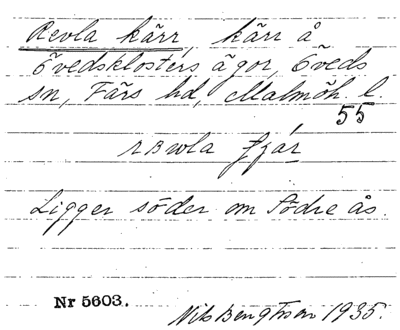 Revla kärr, kärr å
Övedsklosters ägor, Öveds
sn, Färs hd, Malmöh l.
55
Ligger söder om Södre ås.
Nr 5603.
Nils Bengtsson 1935.